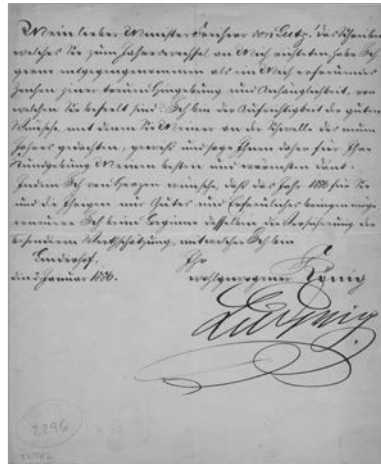 Mein lieber Minister Freiherr von Lutz! Das Schreiben
welches Sie zum Jahreswechsel an Mich richteten habe Ich
gerne entgegengenommen als ein Mich erfreuendes
Zeichen jener treuen Hingebung und Anhänglichkeit, von
welchen Sie beseelt sind. Ich bin der Aufrichtigkeit der guten
Wünsche, mit denen Sie Meiner an der Schwelle des neuen
Jahres gedachten, gewiß und sage Ihnen daher für Ihre
Kundgebung Meinen besten und wärmsten Dank.
Indem Ich von Herzen wünsche, daß das Jahr 1886 für Sie
und die Ihrigen nur Gutes und Erfreuliches bringen möge
erneuere Ich beim Beginne desselben die Versicherung der
besonderen Werthschätzung, mit welcher Ich bin
Linderhof,
den 2 Januar 1886.
Ihr
wohlgewogener König
Ludwig
2296